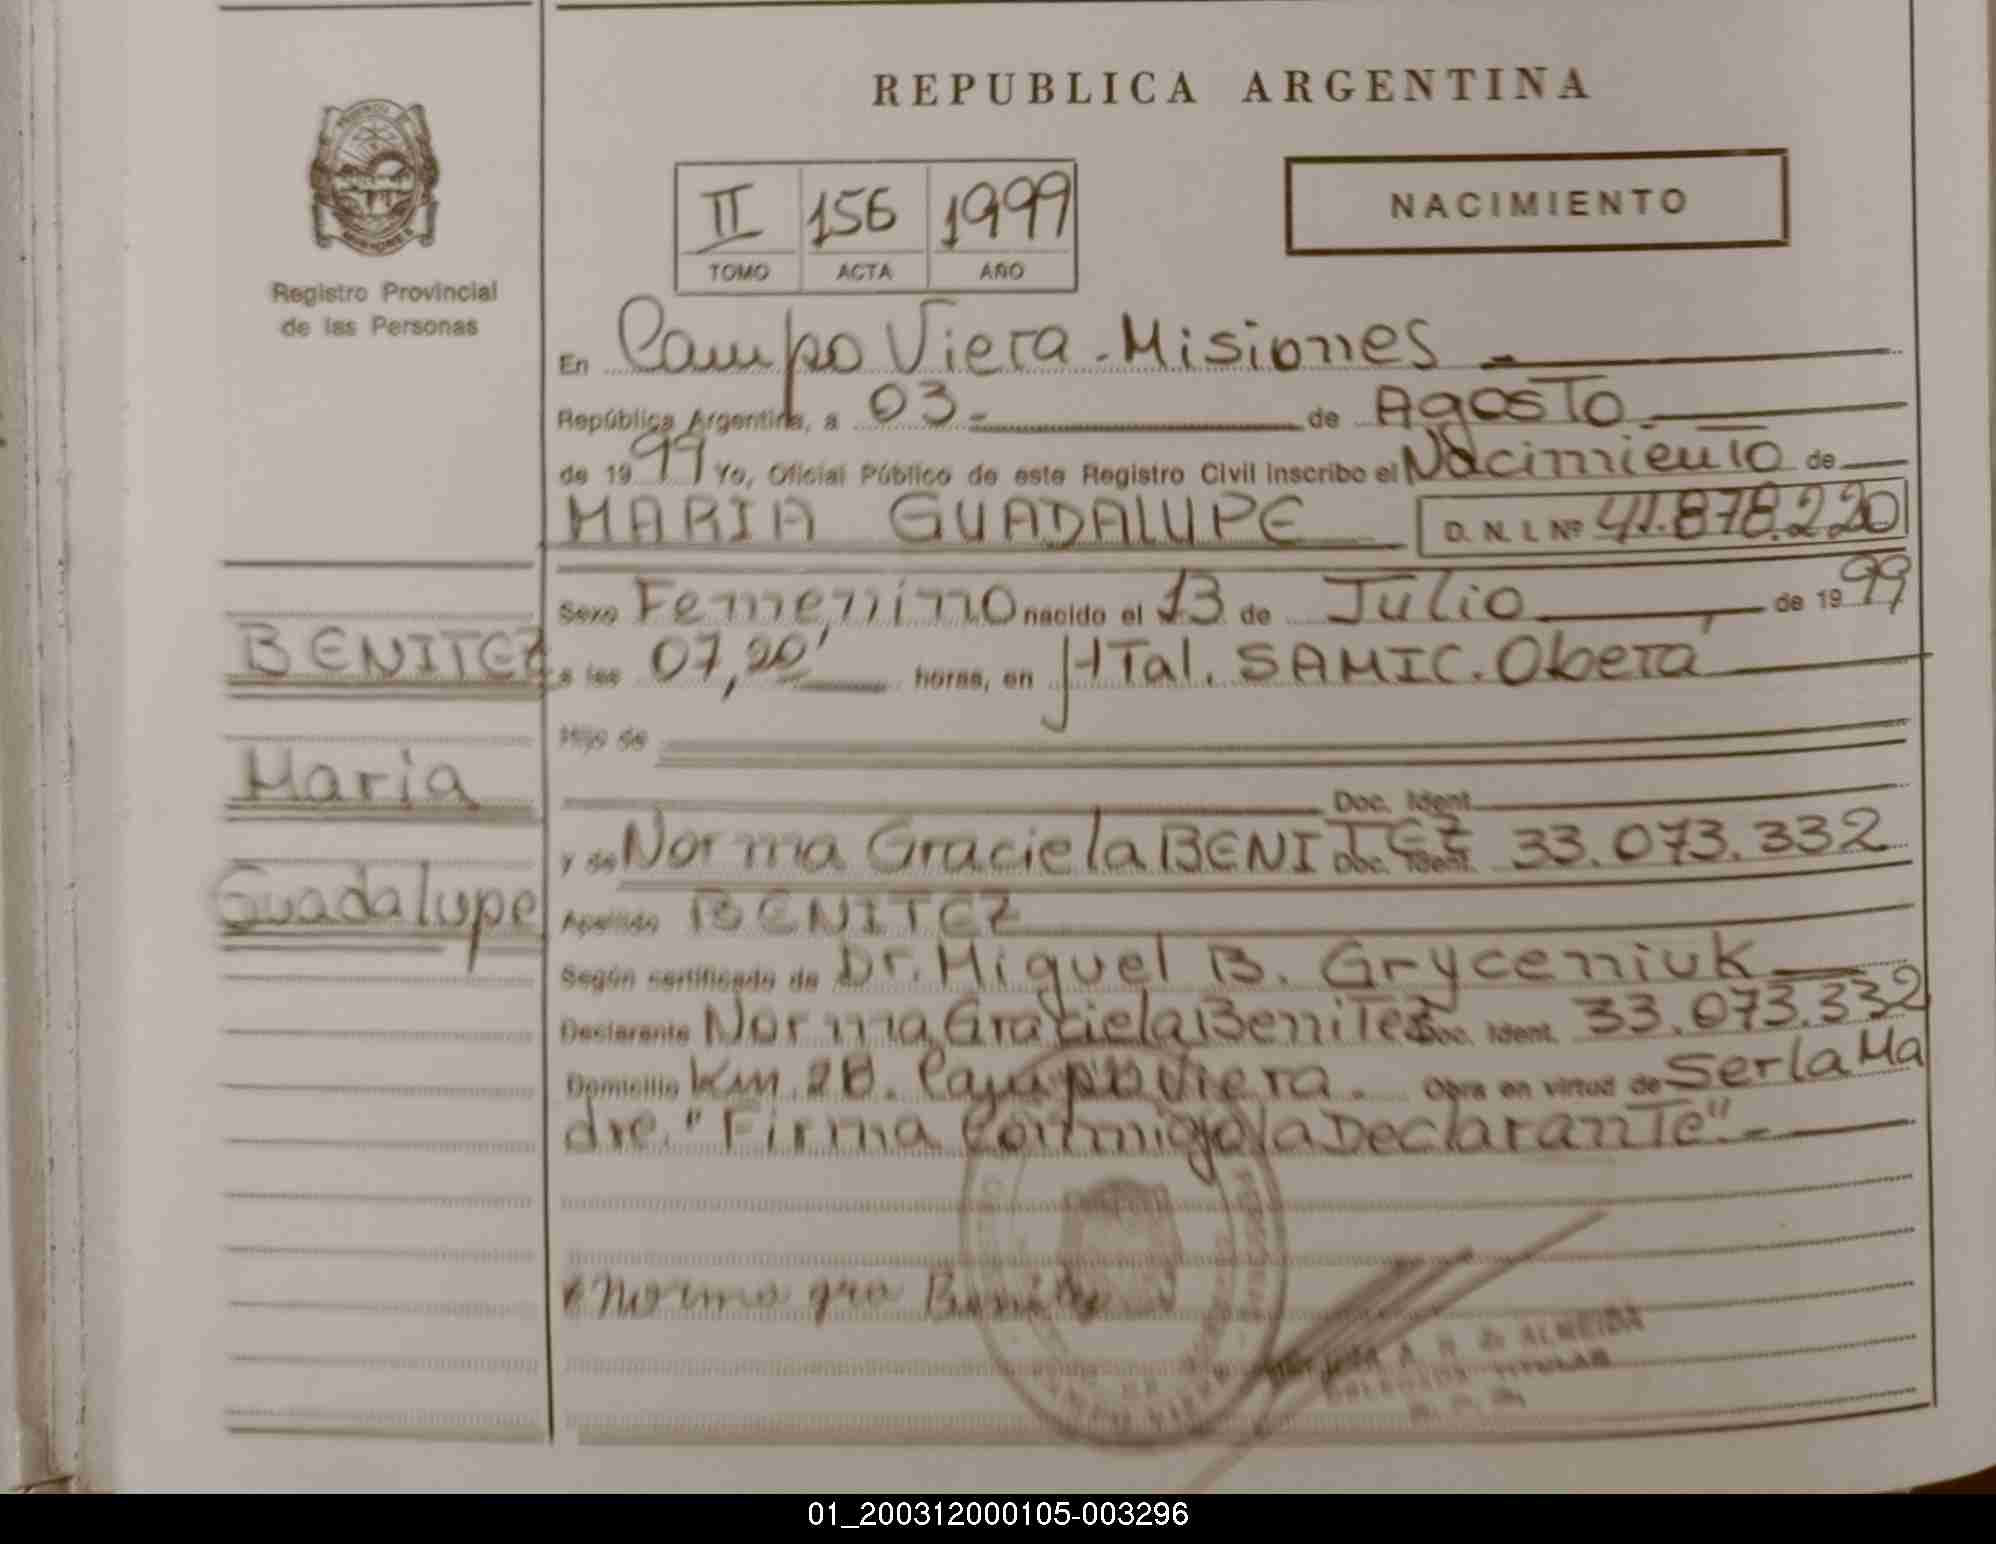 REPUBLICA ARGENTINA
NACIMIENTO
II 156 1999
TOMO ACTA AÑO
Registro Provincial
de las Personas
En Campo Viera - Misiones
República Argentina, a 03 - de Agosto
de 1999 Yo, Oficial Público de este Registro Civil inscribo el Nacimiento de
MARIA GUADALUPE D. N. I. Nº 41.878.220
Sexo Femenino nacido el 13 de Julio de 1999
a las 07,20' horas, en HTal. SAMIC. Oberá
Hijo de
Doc. Ident.
y de Norma Graciela BENITEZ Doc. Ident. 33.073.332
Apellido BENITEZ
Según certificado de Dr. Miguel B. Gryceniuk
Declarante Norma Graciela Benitez Doc. Ident. 33.073.332
Domicilio Km. 28. Campo Viera. Obra en virtud de Ser la Ma
dre. "Firma Conmigo la Declarante".-
BENITEZ
Maria
Guadalupe
Norma gra Benitez
A. R. de ALMEIDA
DELEGADA TITULAR
01_200312000105-003296